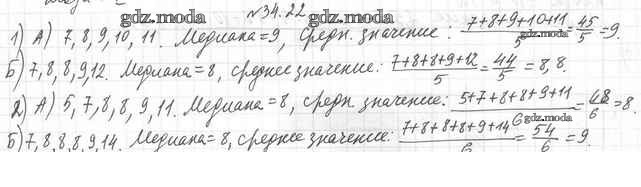 №34.22
gdz.moda gdz.moda
1) А) 7, 8, 9, 10, 11. Медиана=9, Средн. значение: (7+8+9+10+11)/5=45/5=9.
Б) 7, 8, 8, 9, 12. Медиана=8, среднее значение: (7+8+8+9+12)/5=44/5=8,8.
2) А) 5, 7, 8, 8, 9, 11. Медиана=8, средн. значение: (5+7+8+8+9+11)/6=48/6=8.
Б) 7, 8, 8, 8, 9, 14. Медиана=8, среднее значение: (7+8+8+8+9+14)/6=54/6=9.
gdz.moda
gdz.moda